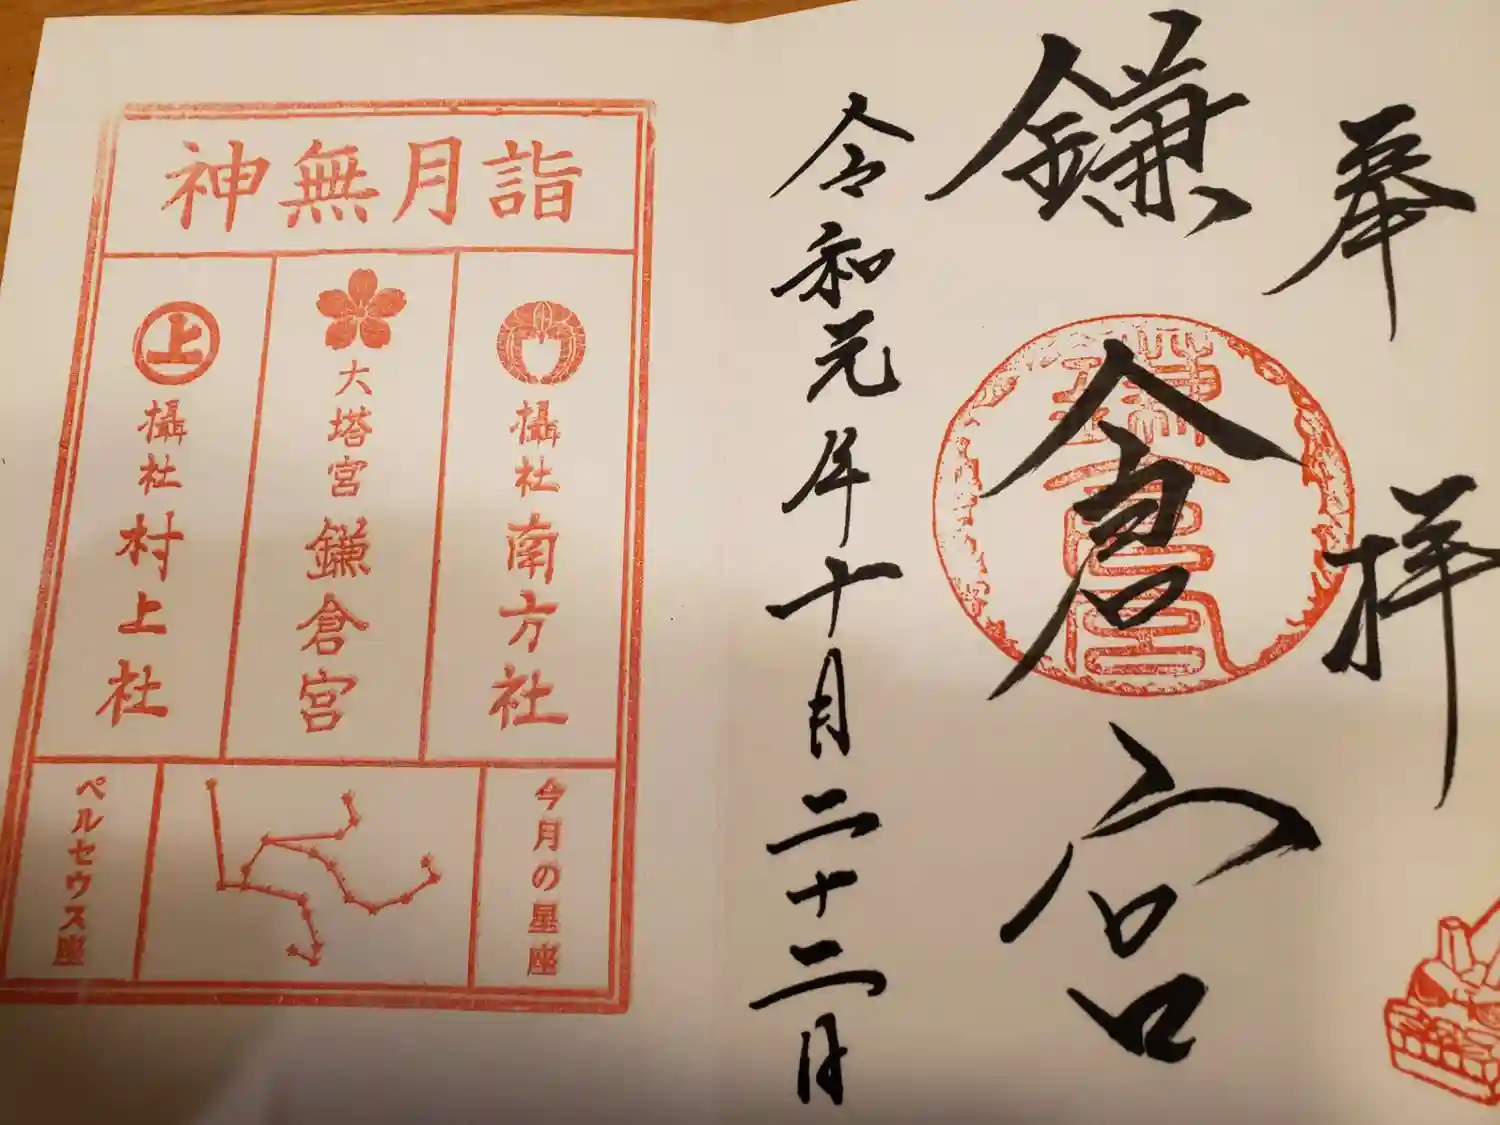 奉拝
鎌倉宮
令和元年十月二十二日
神無月詣
攝社南方社
大塔宮鎌倉宮
上
攝社村上社
今月の星座
ペルセウス座